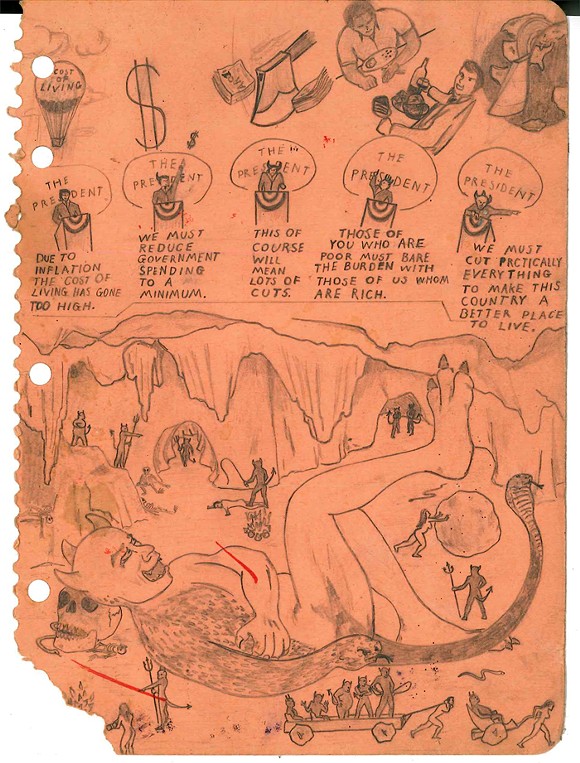 COST
OF
LIVING
$
$
THE
PRE DENT
DUE TO
INFLATION
THE COST OF
LIVING HAS GONE
TOO HIGH.
THE
PRE DENT
WE MUST
REDUCE
GOVERNMENT
SPENDING
TO A
MINIMUM.
THE
PRES ENT
THIS OF
COURSE
WILL
MEAN
LOTS OF
CUTS.
THE
PRES DENT
THOSE OF
YOU WHO ARE
POOR MUST BARE
THE BURDEN WITH
THOSE OF US WHOM
ARE RICH.
THE
PRESIDENT
WE MUST
CUT PRCTICALLY
EVERYTHING
TO MAKE THIS
COUNTRY A
BETTER PLACE
TO LIVE.